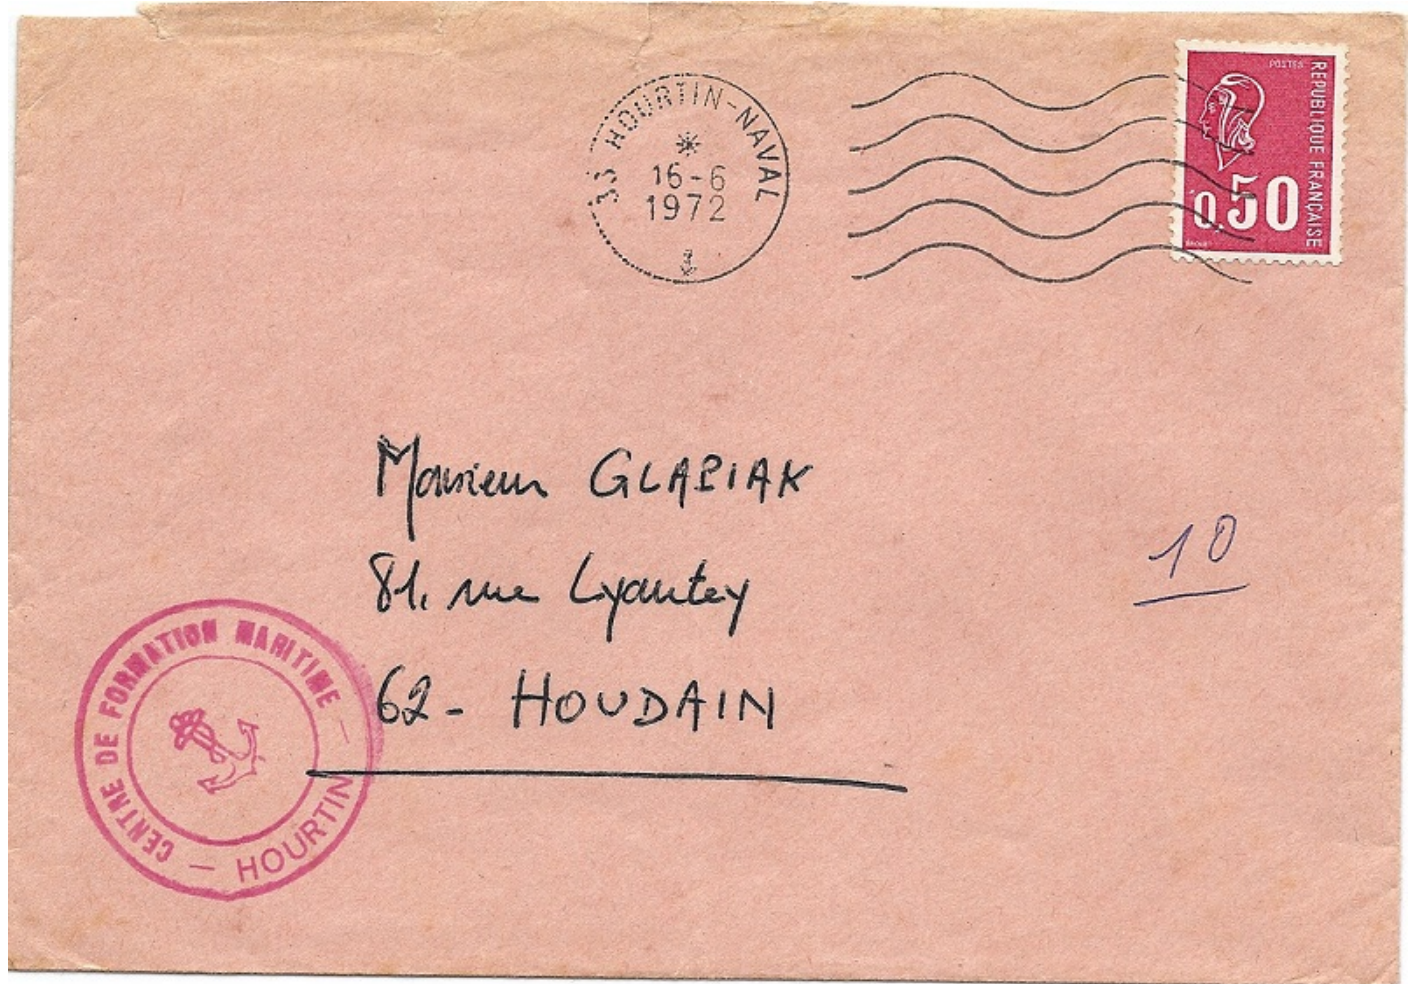 33 HOURTIN-NAVAL
16-6
1972
POSTES
REPUBLIQUE FRANÇAISE
0,50
Monsieur GLAPIAK
81, rue Lyautey
62- HOUDAIN
10
CENTRE DE FORMATION MARITIME -
- HOURTIN